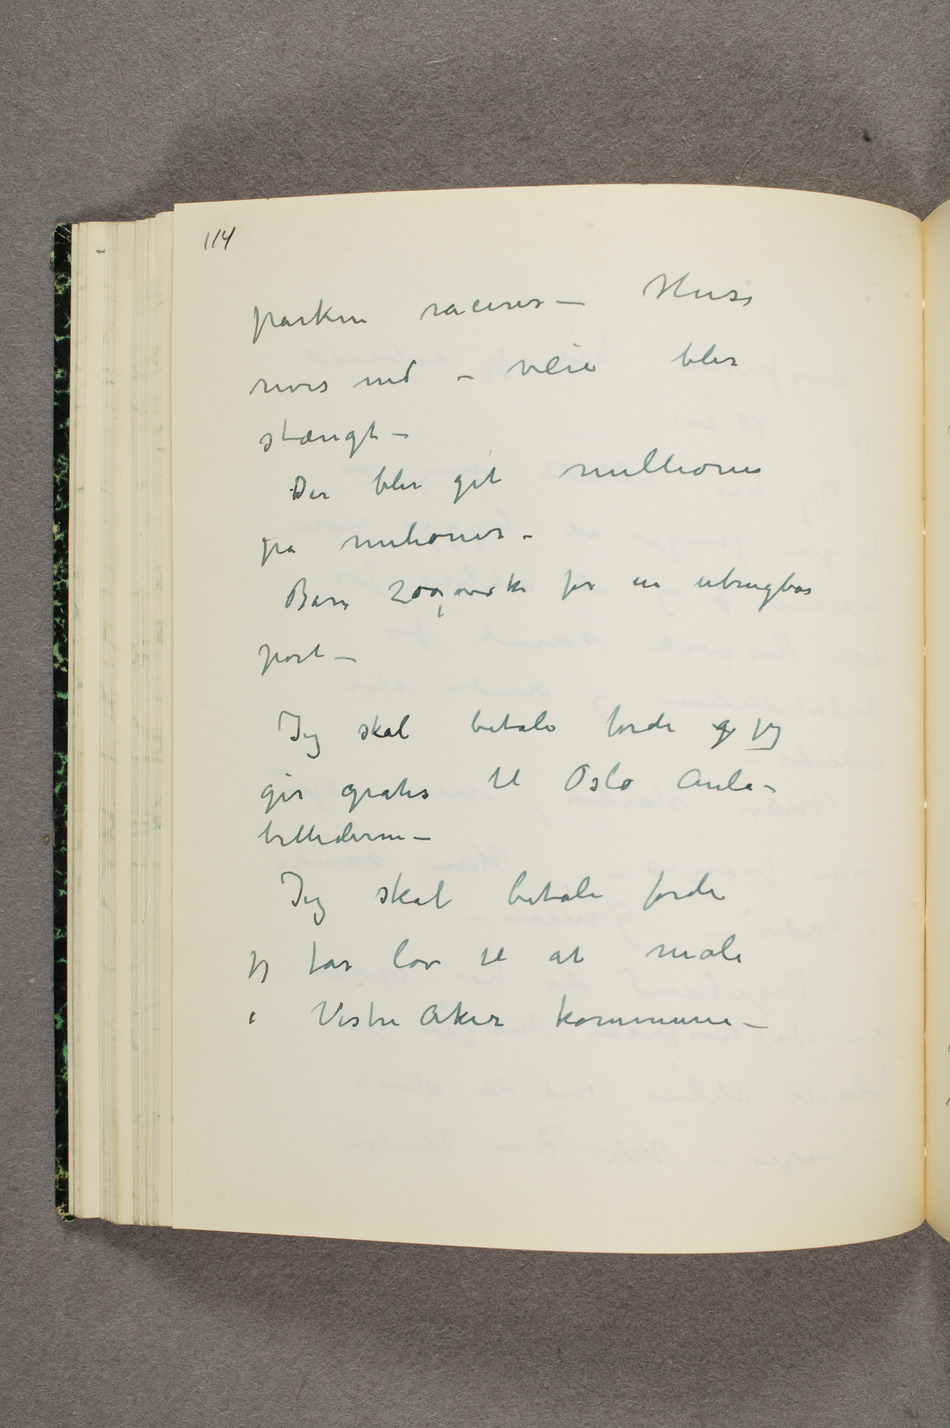 114
parken raceres – Huse
rives ned – veie blir
stængt –
Der blir git millioner
på milioner –
Bare 200,000 kr for en ubrugbar
port –
Jeg skal betale fordi jeg
gir gratis til Oslo Aula-
billederne –
Jeg skal betale fordi
jeg får lov til at male
i Vestre Aker kommune –